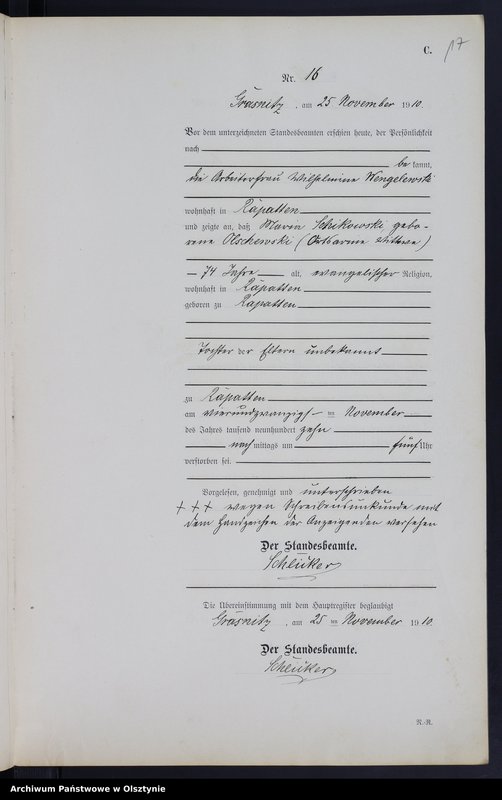 C. 17
Nr. 16
Gräsnitz, am 25 November 1910.
Vor dem unterzeichneten Standesbeamten erschien heute, der Persönlichkeit
nach
bekannt,
die Arbeiterfrau Wilhelmine Wengelewski
wohnhaft in Räpatten
und zeigte an, daß Maria Schikowski gebo-
rene Olschewski (Ortsarme Wittwe)
74 Jahre alt, evangelischer Religion,
wohnhaft in Räpatten
geboren zu Räpatten
Tochter der Eltern unbekannt
zu Räpatten
am vierundzwanzigsten November
des Jahres tausend neunhundert zehn
nachmittags um fünf Uhr
verstorben sei.
Vorgelesen, genehmigt und unterschrieben
+ + + wegen Schreibensunkunde mit
dem Handzeichen der Anzeigenden versehen
Der Standesbeamte.
Schlüker
Die Übereinstimmung mit dem Hauptregister beglaubigt
Gräsnitz, am 25 ten November 1910.
Der Standesbeamte.
Schlüker
N.-R.
Archiwum Państwowe w Olsztynie